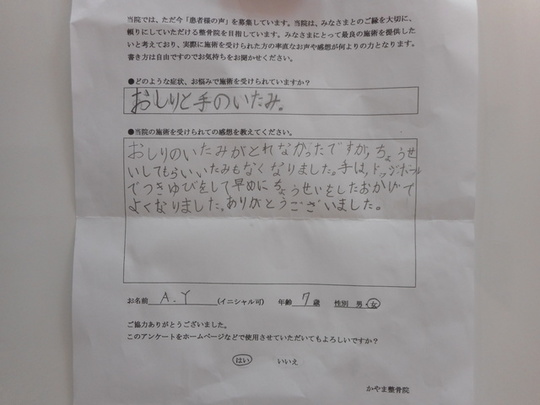 当院では、ただ今「患者様の声」を募集しています。当院は、みなさまとのご縁を大切に、
頼りにしていただける整骨院を目指しています。みなさまにとって最良の施術を提供した
いと考えており、実際に施術を受けられた方の率直なお声や感想が何よりの力となります。
書き方は自由ですのでお気持ちをお聞かせください。
●どのような症状、お悩みで施術を受けられていますか？
おしりと手のいたみ。
●当院の施術を受けられての感想を教えてください。
おしりのいたみがとれなかったですが、ちょうせ
いしてもらいいたみもなくなりました。手は、ドッヂボール
でつきゆびをして早めにちょうせいをしたおかげで
よくなりました。ありがとうございました。
お名前 A.Y (イニシャル可) 年齢 7 歳 性別 男・女
ご協力ありがとうございました。
このアンケートをホームページなどで使用させていただいてもよろしいですか？
はい いいえ
かやま整骨院